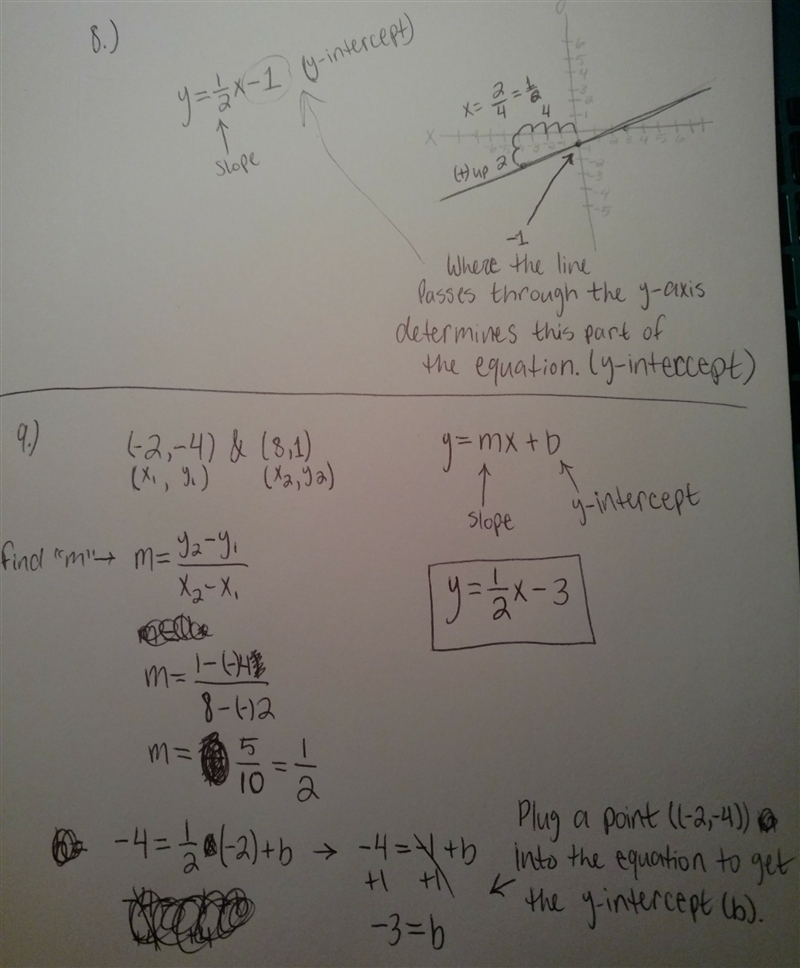 8.)
y=1/2x-1 (y-intercept)
slope
x=2/4=1/2
4
x
(+)up 2
-1
Where the line
passes through the y-axis
determines this part of
the equation. (y-intercept)
9.)
(-2,-4) & (8,1)
(x₁, y₁) (x₂,y₂)
y=mx+b
slope
y-intercept
find "m"→ m= y₂-y₁/x₂-x₁
y=1/2x-3
m= 1-(-)4/8-(-)2
m= 5/10=1/2
-4=1/2•(-2)+b → -4=-1+b
+1 +1
-3=b
Plug a point ((-2,-4))
into the equation to get
the y-intercept (b).